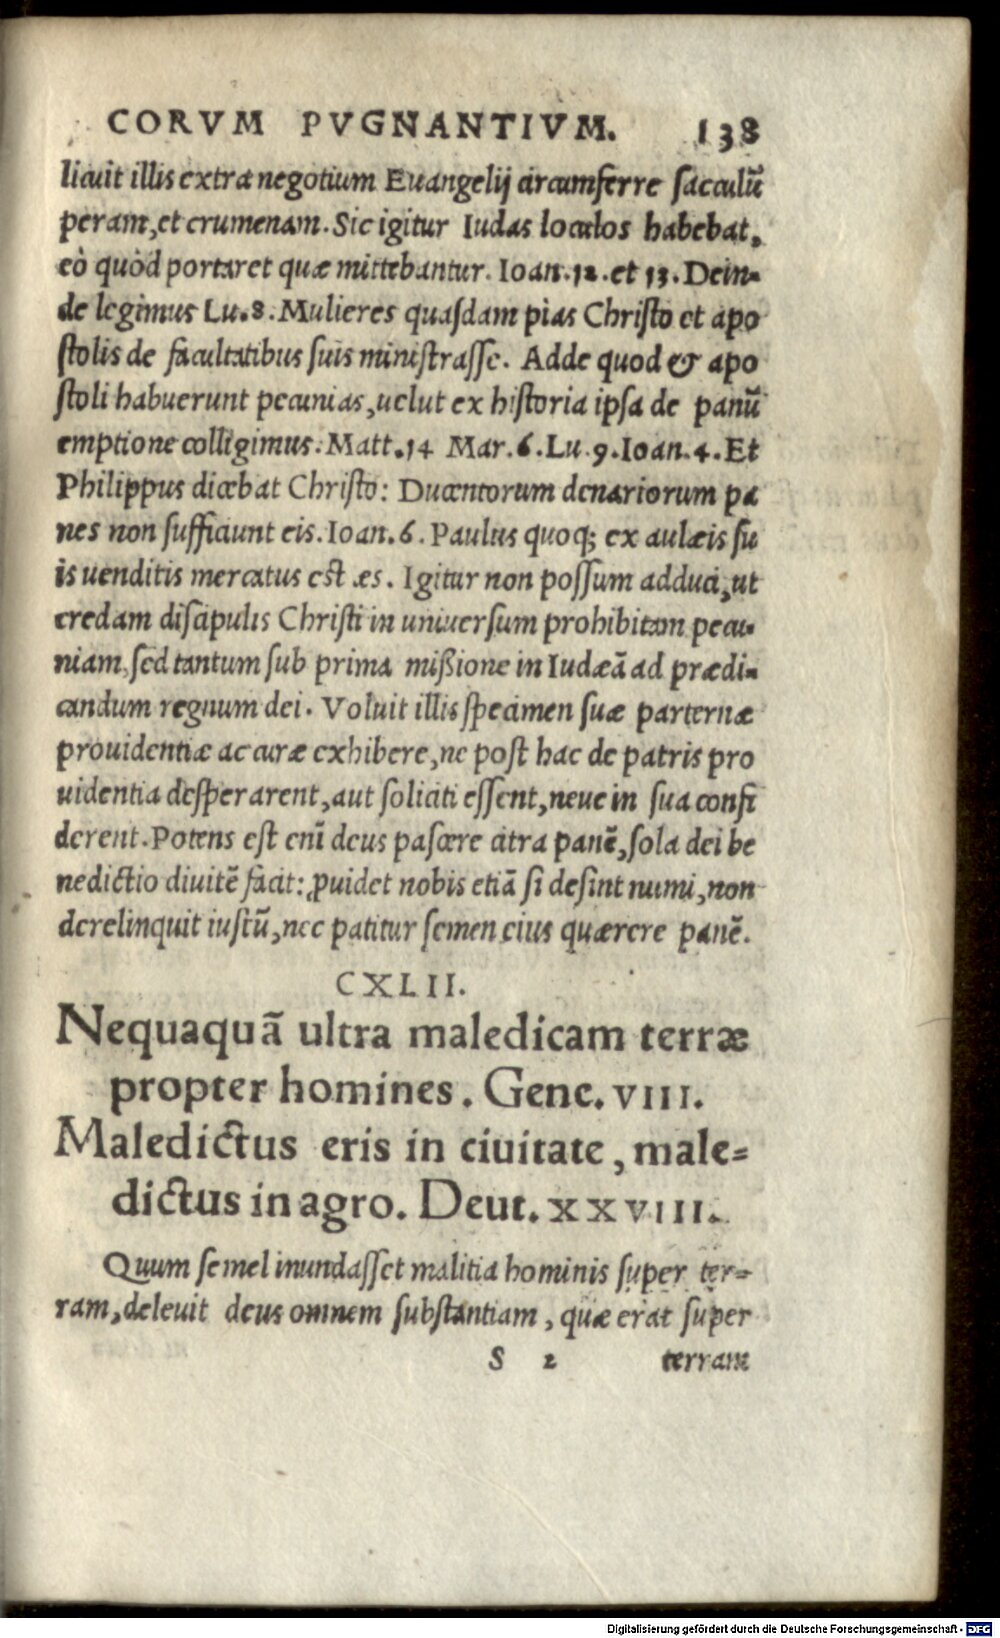 CORVM PVGNANTIVM. 138
licuit illis extra negotium Euangelij circumferre sacculũ
peram, et crumenam. Sic igitur Iudas loculos habebat,
eò quòd portaret quæ mittebantur. Ioan. 12. et 13. Dein-
de legimus Lu. 8. Mulieres quasdam pias Christo et apo
stolis de facultatibus suis ministrasse. Adde quod & apo
stoli habuerunt pecunias, uelut ex historia ipsa de panũ
emptione colligimus. Matt. 14 Mar. 6. Lu. 9. Ioan. 4. Et
Philippus dicebat Christo: Ducentorum denariorum pa
nes non sufficiunt eis. Ioan. 6. Paulus quoq; ex aulæis su
is uenditis mercatus est æs. Igitur non possum adduci, ut
credam discipulis Christi in uniuersum prohibitam pecu-
niam, sed tantum sub prima mißione in Iudæã ad prædi-
candum regnum dei. Voluit illis specimen suæ parternæ
prouidentiæ ac curæ exhibere, ne post hac de patris pro
uidentia desperarent, aut soliciti essent, neue in sua confi
derent. Potens est enĩ deus pascere citra panẽ, sola dei be
nedictio diuitẽ facit: ꝓuidet nobis etiã si desint numi, non
derelinquit iustũ, nec patitur semen eius quærere panẽ.
CXLII.
Nequaquã ultra maledicam terræ
propter homines. Gene. VIII.
Maledictus eris in ciuitate, male-
dictus in agro. Deut. XXVIII.
Quum semel inundasset malitia hominis super ter-
ram, deleuit deus omnem substantiam, quæ erat super
S 2 terram
Digitalisierung gefördert durch die Deutsche Forschungsgemeinschaft - DFG